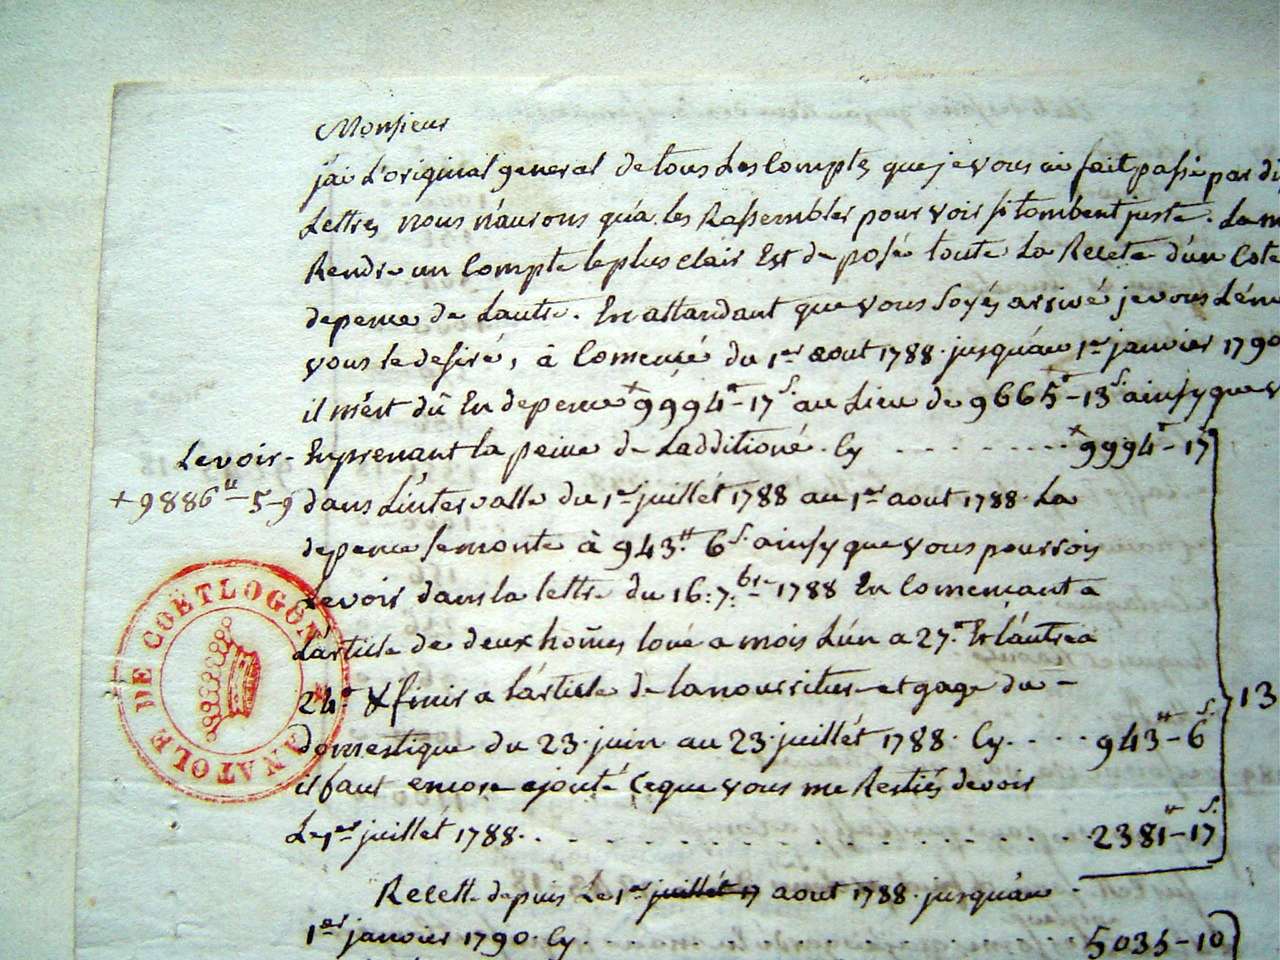 Monsieur
j'ai L'original general de tous Les Comptes que je vous ai fait passé par
Lettres nous n'aurons qu'a les Rassembler pour voir si tombent juste. La
Rendre un Compte le plus clair Est de posé toute La Recete d'un Coté
depence de Lautre. En attandant que vous soyés arrivé je vous
vous le desiré, à Comencé du 1er aout 1788 jusqu'au 1er janvier 1790
il m'est dû En depence +9994tt-17s au Lieu de 9665tt-13s ainsy que
Levoir - En prenant la peine de Ladditioné. Cy ......... +9994tt-17s
+9886tt-5-9 dans L'intervalle du 1er juillét 1788 au 1er aout 1788 La
depence se monte à 943tt 6s ainsy que vous pourrois
Levoir dans la lettre du 16: 7.bre 1788 En Començant a
L'article de deux hom̃es loué a mois L'un a 27tt Et L'autre a
24tt & finir a l'article de la nourriture et gage du -
domestique du 23 juin au 23 juillét 1788. Cy.... 943tt-6s
il faut encore ajouté Ceque vous me Restiés devoir
Le 1er juillet 1788. .............. 2381tt-17s
13
Recette depuis Le 1er juillét 17 aout 1788 jusqu'au
1er janvier 1790. Cy. ............ 5035-10
ANATOLE DE COËTLOGON